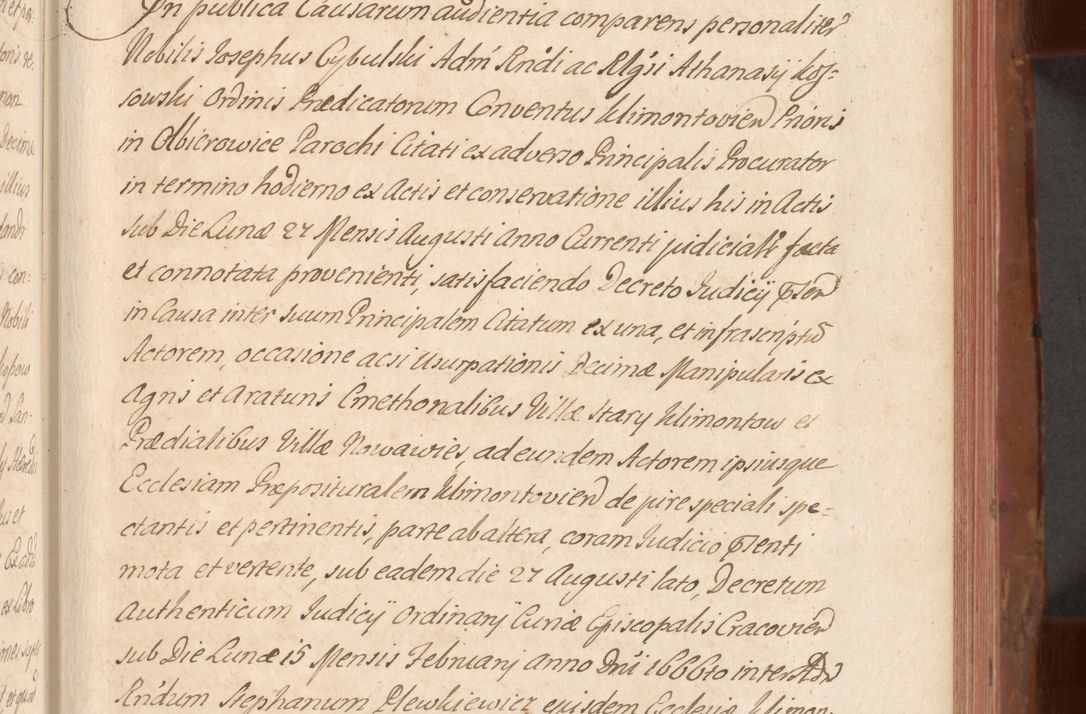 In publica Causarum audientia comparens personaliter
Nobilis Josephus Cybulski Adm Rndi ac Rlgsi Athanasij Kos-
sowski Ordinis Prædicatorum Conventus Klimontovien Prioris
in Olbierowice Parochi Citati ex adverso Principalis Procurator
in termino hodierno ex Actis et conservatione illius his in Actis
sub Die Lunæ 27 Mensis Augusti Anno Currenti judicialr facta
et connotata provenienti, satisfaciendo Decreto Judicij Psen
in Causa inter suum Principalem Citatum ex una, et infrascriptu
Actorem, occasione acsi Usurpationis Decimæ Manipularis ex
Agris et araturis Cmethonalibus Villæ Stary Klimontow et
Prædialibus Villæ Nowawieś, ad eundem Actorem ipsiusque
Ecclesiam Præposituralem Klimontovien de jure speciali spe-
ctantis et pertinentis, parte ab altera, coram Judicio Psenti
mota et vertente, sub eadem die 27 Augusti lato, Decretum
Authenticum Judicij Ordinarij Curiæ Episcopalis Cracovien
sub Die Lunæ 15 Mensis Februarij Anno Dni 1666to inter Ad
Rndum Stephanum Plewkiewicz ejusdem Ecclesiæ Klimon-